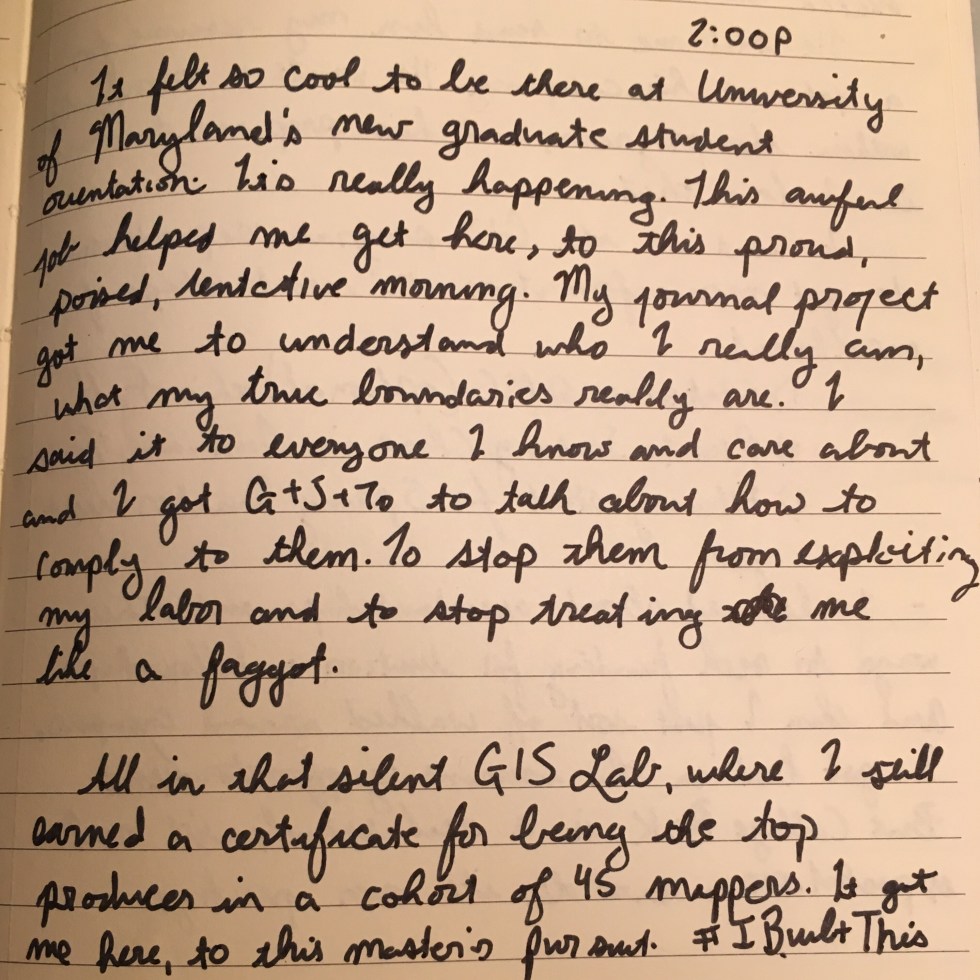 2:00p
It felt so cool to be there at University
of Maryland's new graduate student
orientation. It's really happening. This awful
job helped me get here, to this proud,
poised, tentative morning. My journal project
got me to understand who I really am,
what my true boundaries really are. I
said it to everyone I know and care about
and I got G+J+To to talk about how to
comply to them. To stop them from exploiting
my labor and to stop treating me
like a faggot.
All in that silent GIS Lab, where I still
earned a certificate for being the top
producer in a cohort of 45 mappers. It got
me here, to this master's pursuit. #IBuiltThis